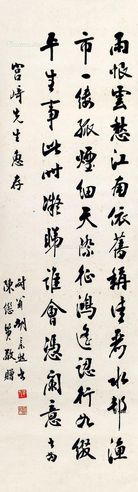 雨恨雲愁江南依舊稱佳麗水邨漁
市一縷孤煙細天際征鴻遙認行如綴
平生事此時凝睇誰會憑闌意
宮崎先生惠存
陳
敬贈